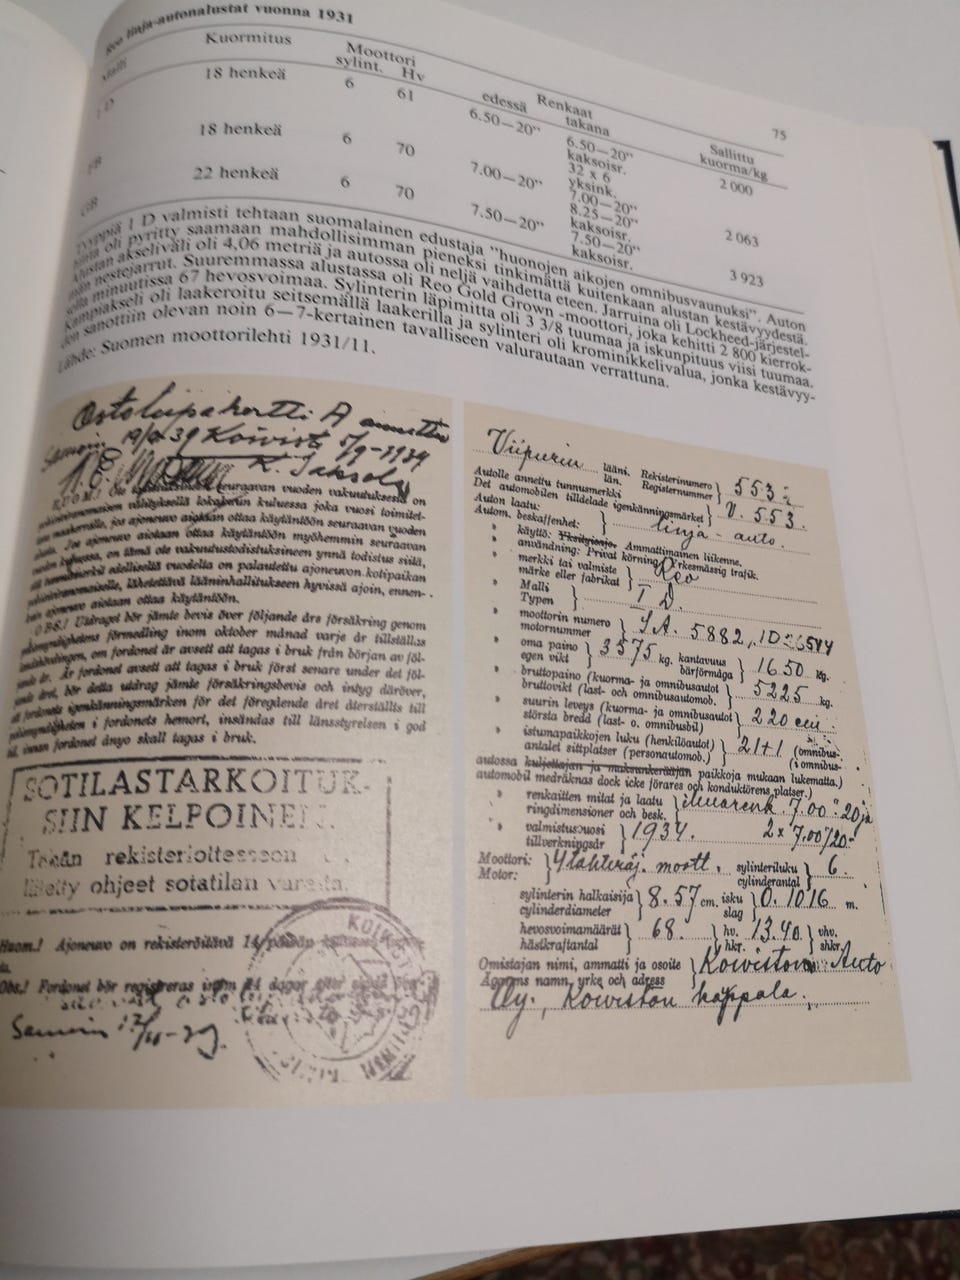 75
Reo linja-autonalustat vuonna 1931
Malli Kuormitus Moottori Renkaat Sallittu
sylint. Hv edessä takana kuorma/kg
1 D 18 henkeä 6 61 6.50—20" 6.50—20" 2 000
kaksoisr.
32 x 6
yksink.
FB 18 henkeä 6 70 7.00—20" 7.00—20" 2 063
8.25—20"
kaksoisr.
GB 22 henkeä 6 70 7.50—20" 7.50—20" 3 923
kaksoisr.
Tyyppiä 1 D valmisti tehtaan suomalainen edustaja "huonojen aikojen omnibusvaunuksi". Auton
hinta oli pyritty saamaan mahdollisimman pieneksi tinkimättä kuitenkaan alustan kestävyydestä.
Alustan akseliväli oli 4,06 metriä ja autossa oli neljä vaihdetta eteen. Jarruina oli Lockheed-järjestel-
män nestejarrut. Suuremmassa alustassa oli Reo Gold Grown -moottori, joka kehitti 2 800 kierrok-
sella minuutissa 67 hevosvoimaa. Sylinterin läpimitta oli 3 3/8 tuumaa ja iskunpituus viisi tuumaa.
Kampiakseli oli laakeroitu seitsemällä laakerilla ja sylinteri oli krominikkelivalua, jonka kestävyy-
den sanottiin olevan noin 6—7-kertainen tavalliseen valurautaan verrattuna.
Lähde: Suomen moottorilehti 1931/11.
Ostolupakortti A annettu
Samoin 19/9 39 Koivisto 5/9-1934
K. Jaksola
HUOM.! Ote seuraavan vuoden vakuutuksesta on
poliisiviranomaisen välityksellä lokakuun kuluessa joka vuosi toimitet-
tava maaherralle, jos ajoneuvo aiotaan ottaa käytäntöön seuraavan vuoden
alusta. Jos ajoneuvo aiotaan ottaa käytäntöön myöhemmin seuraavan
vuoden kuluessa, on tämä ote vakuutustodistuksineen ynnä todistus siitä,
että tunnusmerkit edelliseltä vuodelta on palautettu ajoneuvon kotipaikan
poliisiviranomaiselle, lähetettävä lääninhallitukseen hyvissä ajoin, ennen-
kuin ajoneuvo aiotaan ottaa käytäntöön.
OBS.! Utdraget bör jämte bevis över följande års försäkring genom
polismyndighetens förmedling inom oktober månad varje år tillställas
landshövdingen, om fordonet är avsett att tagas i bruk från början av föl-
jande år. Är fordonet avsett att tagas i bruk först senare under det föl-
jande året, bör detta utdrag jämte försäkringsbevis och intyg däröver,
att fordonets igenkänningsmärken för det föregående året återställts till
polismyndigheten i fordonets hemort, insändas till länsstyrelsen i god
tid, innan fordonet ånyo skall tagas i bruk.
SOTILASTARKOITUK-
SIIN KELPOINEN.
Tähän rekisteriotteeseen
liitetty ohjeet sotatilan varalta.
Huom.! Ajoneuvo on rekisteröitävä 14 päivän
Obs.! Fordonet bör registreras inom 14 dagar
Samoin
KOIVISTO
Viipurin lääni. Rekisterinumero } 553
län. Registernummer
Autolle annettu tunnusmerkki } V. 553.
Det automobilen tilldelade igenkänningsmärket
Auton laatu: } linja-auto.
Autom. beskaffenhet:
" käyttö: Yksityisajo. Ammattimainen liikenne.
" användning: Privat körning. Yrkesmässig trafik.
" merkki tai valmiste } Reo
märke eller fabrikat
" Malli } 1 D.
Typen
" moottorin numero }
motornummer
" oma paino } 3575 kg. kantavuus } 1650 kg.
egen vikt bärförmåga
" bruttopaino (kuorma- ja omnibusautot } 5225 kg.
bruttovikt (last- och omnibusautomob.
" suurin leveys (kuorma- ja omnibusautot } 220 cm
största bredd (last- o. omnibusbil)
" istumapaikkojen luku (henkilöautot) } 21+1 (omnibus-
antalet sittplatser (personautomob.) (i omnibus-
autossa kuljettajan ja maksunkerääjän paikkoja mukaan lukematta.)
automobil medräknas dock icke förares och konduktörens platser.)
" renkaitten mitat ja laatu } ilmarenk. 7.00"-20 ja
ringdimensioner och besk.
" valmistusvuosi } 1934. 2 x 7.00/20-
tillverkningsår
Moottori: } 4 tahtiräj. moott. sylinteriluku } 6.
Motor: cylinderantal
sylinterin halkaisija } 8.57 cm. isku } 0.1016 m.
cylinderdiameter slag
hevosvoimamäärät } 68. hv. } 13.40 vhv.
hästkraftantal hkr. shkr.
Omistajan nimi, ammatti ja osoite } Koiviston Auto
Ägarens namn, yrke och adress
Oy, Koiviston kauppala.